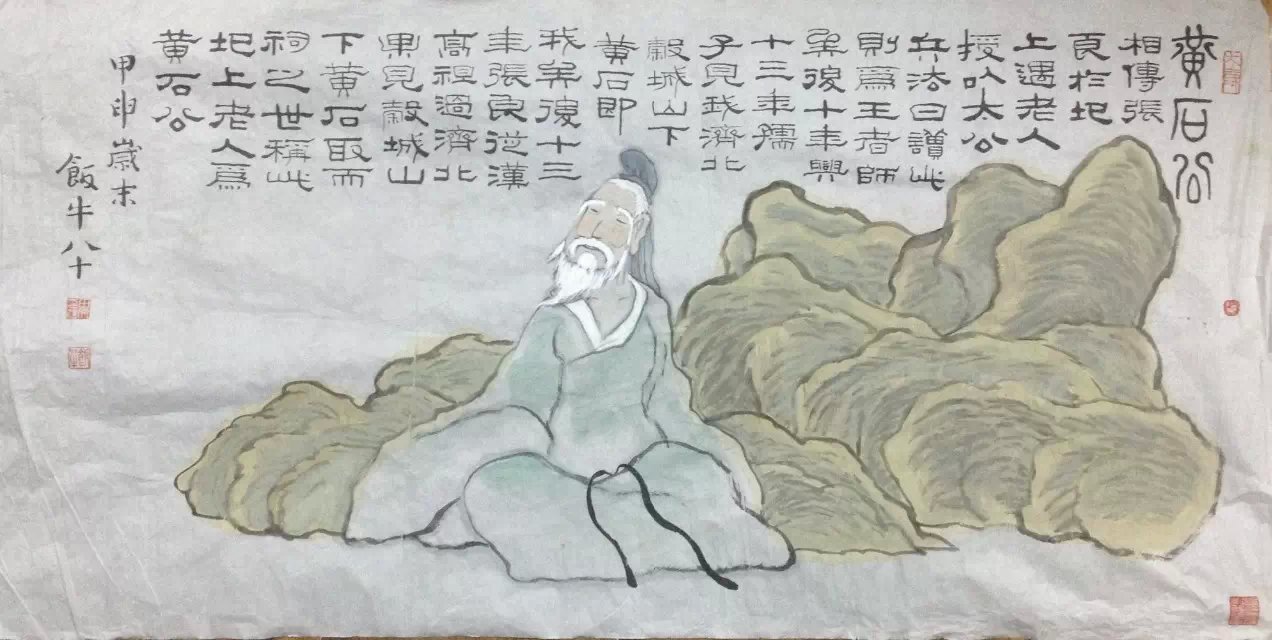 黃石公
相傳張
良於圯
上遇老人
授以太公
兵法曰讀此
則爲王者師
矣後十年興
十三年孺
子見我濟北
穀城山下
黃石即
我矣後十三
年張良從漢
高祖過濟北
果見穀城山
下黃石取而
祠之世稱此
圯上老人爲
黃石公
甲申歲末
飯牛八十